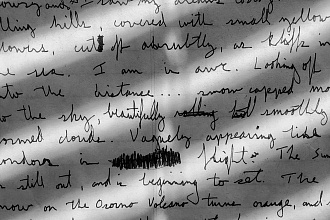 rolling hills, covered with small yellow
flowers, cut off abruptly, as kliffs in
the sea. I am in awe. Looking off
into the distance... snow capped mo
to the sky, beautifully smoothly
formed clouds. Vaguely appearing like
condor in flight. The Su
s still out, and is beginning to set. The
snow on the Osorno Volcano turns orange, and